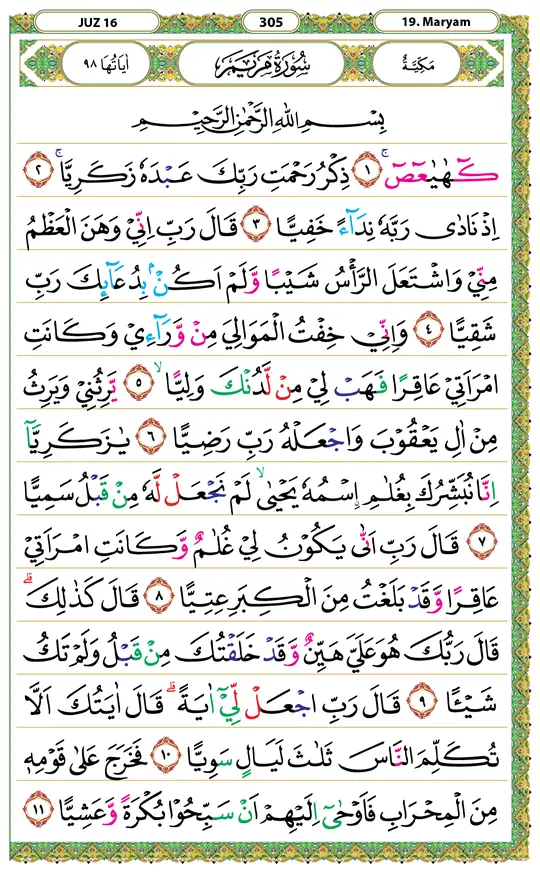 JUZ 16
305
19. Maryam
مَكِّيَّةٌ
سُوْرَةُ مَرْيَمَ
اٰيَاتُهَا ٩٨
بِسْمِ اللّٰهِ الرَّحْمٰنِ الرَّحِيْمِ
كۤهٰيٰعۤصۤ ۚ ١ ذِكْرُ رَحْمَتِ رَبِّكَ عَبْدَهٗ زَكَرِيَّا ۚ ٢
اِذْ نَادٰى رَبَّهٗ نِدَاۤءً خَفِيًّا ٣ قَالَ رَبِّ اِنِّيْ وَهَنَ الْعَظْمُ
مِنِّيْ وَاشْتَعَلَ الرَّأْسُ شَيْبًا وَّلَمْ اَكُنْۢ بِدُعَاۤىِٕكَ رَبِّ
شَقِيًّا ٤ وَاِنِّيْ خِفْتُ الْمَوَالِيَ مِنْ وَّرَاۤءِيْ وَكَانَتِ
امْرَاَتِيْ عَاقِرًا فَهَبْ لِيْ مِنْ لَّدُنْكَ وَلِيًّا ۙ ٥ يَّرِثُنِيْ وَيَرِثُ
مِنْ اٰلِ يَعْقُوْبَ وَاجْعَلْهُ رَبِّ رَضِيًّا ٦ يٰزَكَرِيَّآ
اِنَّا نُبَشِّرُكَ بِغُلٰمِ ِۨاسْمُهٗ يَحْيٰىۙ لَمْ نَجْعَلْ لَّهٗ مِنْ قَبْلُ سَمِيًّا
٧ قَالَ رَبِّ اَنّٰى يَكُوْنُ لِيْ غُلٰمٌ وَّكَانَتِ امْرَاَتِيْ
عَاقِرًا وَّقَدْ بَلَغْتُ مِنَ الْكِبَرِ عِتِيًّا ٨ قَالَ كَذٰلِكَ ۗ
قَالَ رَبُّكَ هُوَ عَلَيَّ هَيِّنٌ وَّقَدْ خَلَقْتُكَ مِنْ قَبْلُ وَلَمْ تَكُ
شَيْـًٔا ٩ قَالَ رَبِّ اجْعَلْ لِّيْٓ اٰيَةً ۗ قَالَ اٰيَتُكَ اَلَّا
تُكَلِّمَ النَّاسَ ثَلٰثَ لَيَالٍ سَوِيًّا ١٠ فَخَرَجَ عَلٰى قَوْمِهٖ
مِنَ الْمِحْرَابِ فَاَوْحٰىٓ اِلَيْهِمْ اَنْ سَبِّحُوْا بُكْرَةً وَّعَشِيًّا ١١